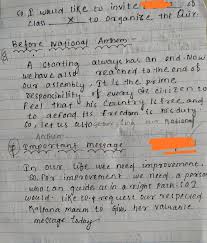 so I would like to invite of
class X to organize the Quiz
Before National Anthem-
A starting always has an end. Now
we have also reached to the end of
our assembly. It is the prime
responsibility of every citizen to
feel that his country is free and
to defend its freedom is his duty.
So, let us our National
Anthem-
Important message
In our life we need improvement
so for improvement we need a person
who can guide us in a right path. So I
would like to request our respected
Ma'am to give her valuable
message today-